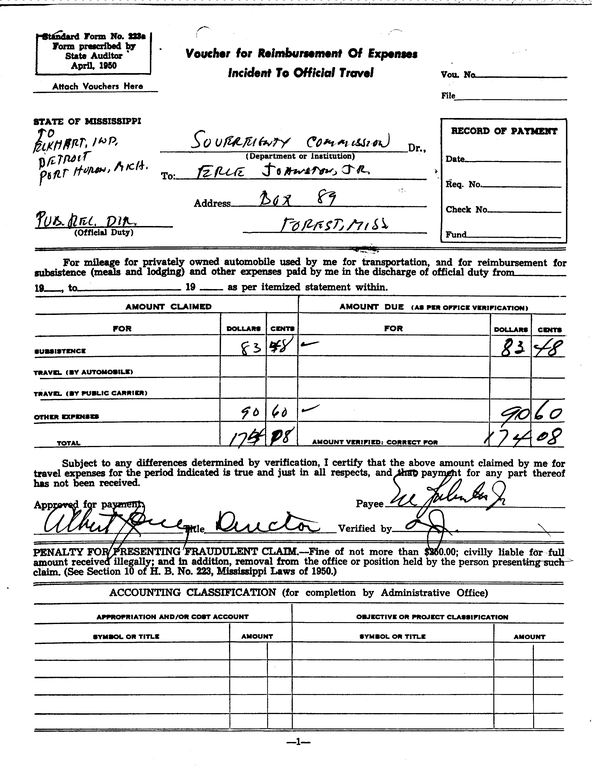 Standard Form No. 223a
Form prescribed by
State Auditor
April, 1950
Attach Vouchers Here
Voucher for Reimbursement Of Expenses
Incident To Official Travel
Vou. No.
File
STATE OF MISSISSIPPI
TO
ELKHART, IND,
DETROIT
PORT HURON, MICH.
SOVEREIGNTY COMMISSION Dr.,
(Department or Institution)
To: ERLE JOHNSTON, JR.
Address BOX 89
FOREST, MISS
PUB. REL. DIR.
(Official Duty)
RECORD OF PAYMENT
Date
Req. No.
Check No.
Fund
For mileage for privately owned automobile used by me for transportation, and for reimbursement for
subsistence (meals and lodging) and other expenses paid by me in the discharge of official duty from
19 , to 19 as per itemized statement within.
AMOUNT CLAIMED AMOUNT DUE (AS PER OFFICE VERIFICATION)
FOR DOLLARS CENTS FOR DOLLARS CENTS
SUBSISTENCE 83 48 83 48
TRAVEL (BY AUTOMOBILE)
TRAVEL (BY PUBLIC CARRIER)
OTHER EXPENSES 90 60 90 60
TOTAL 174 08 AMOUNT VERIFIED: CORRECT FOR 174 08
Subject to any differences determined by verification, I certify that the above amount claimed by me for
travel expenses for the period indicated is true and just in all respects, and that payment for any part thereof
has not been received.
Approved for payment: Payee Erle Johnston Jr
Albert Title Director Verified by
PENALTY FOR PRESENTING FRAUDULENT CLAIM.—Fine of not more than $250.00; civilly liable for full
amount received illegally; and in addition, removal from the office or position held by the person presenting such
claim. (See Section 10 of H. B. No. 223, Mississippi Laws of 1950.)
ACCOUNTING CLASSIFICATION (for completion by Administrative Office)
APPROPRIATION AND/OR COST ACCOUNT OBJECTIVE OR PROJECT CLASSIFICATION
SYMBOL OR TITLE AMOUNT SYMBOL OR TITLE AMOUNT
—1—